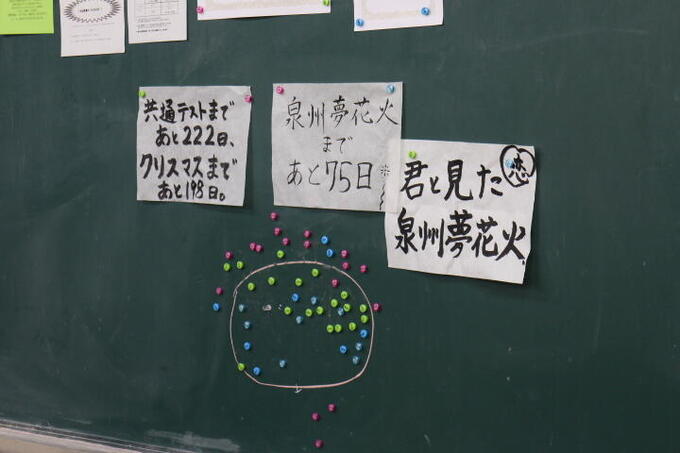 共通テストまで
あと222日、
クリスマスまで
あと198日。
泉州夢花火
まで
あと75日
※
恋
君と見た
泉州夢花火